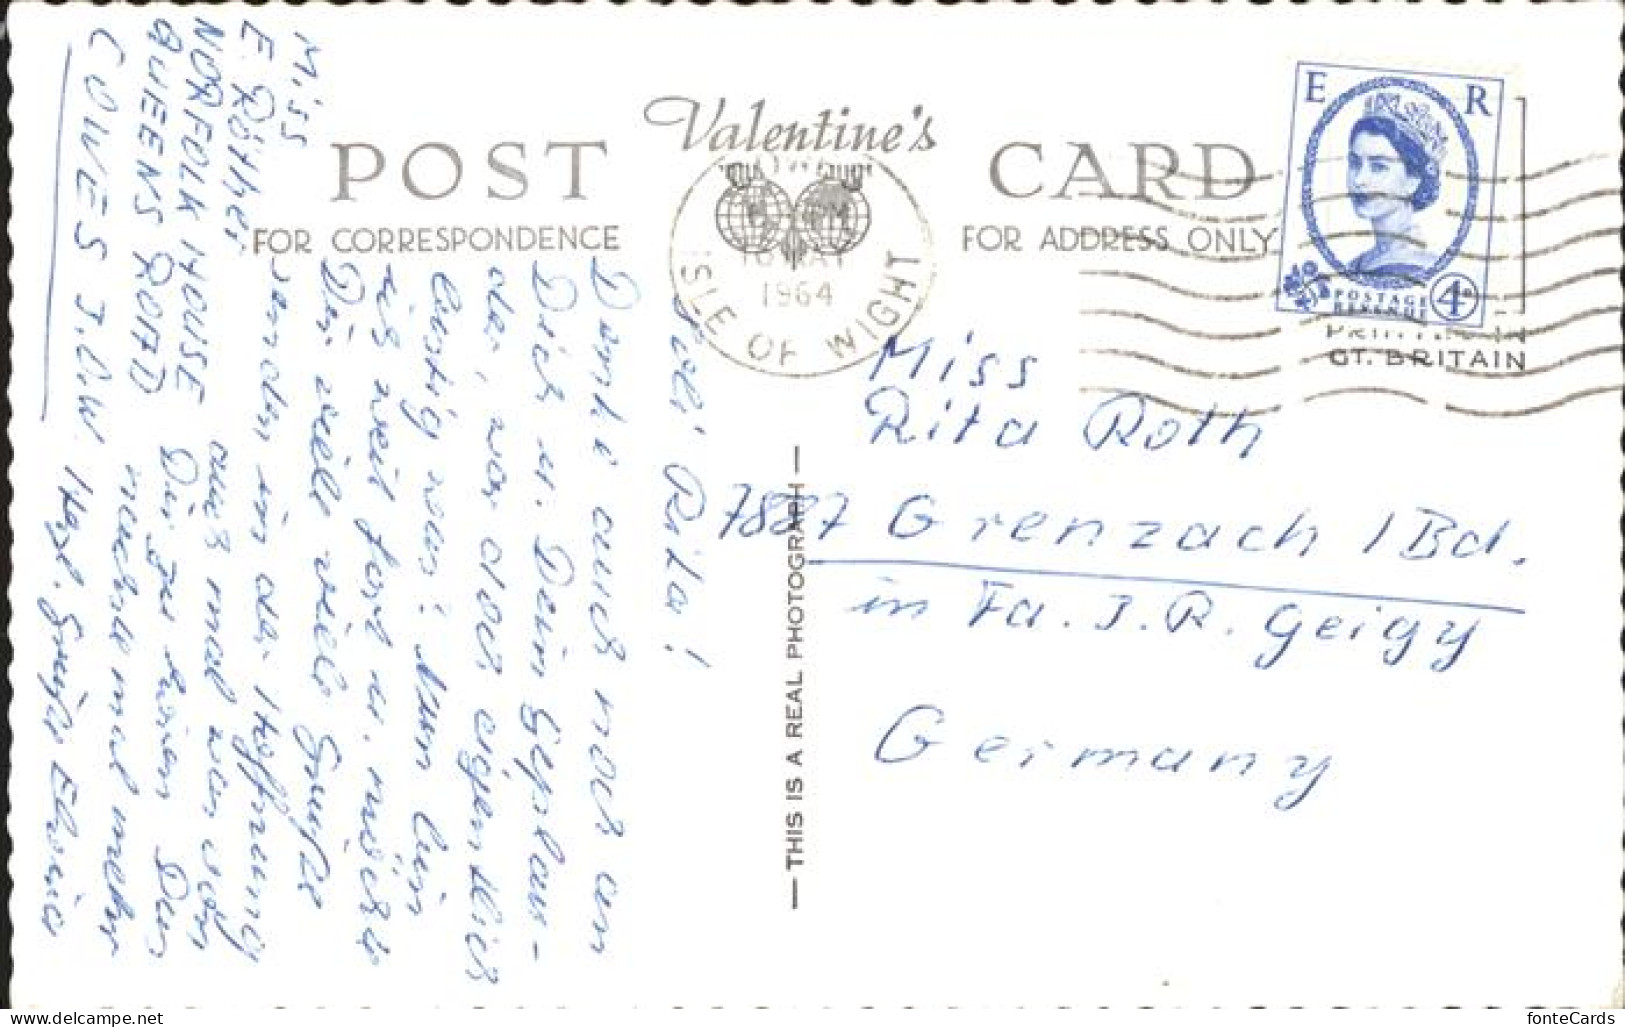 Valentine's
POST CARD
FOR CORRESPONDENCE
FOR ADDRESS ONLY
E R
POSTAGE
REVENUE
4D
PRINTED IN
GT. BRITAIN
PM
MAY
1964
ISLE OF WIGHT
Miss
Rita Roth
7887 Grenzach / Bd.
in Fa. J. R. Geigy
Germany
— THIS IS A REAL PHOTOGRAPH —
Miss
E. Röther
NORFOLK HOUSE
QUEENS ROAD
COWES I.O.W.
Rita!
Danke auch noch
Dich u. Dein
war doch eigentlich
lustig was? Nun bin
ich weit fort u. möchte
Dir viele viele Grüße
senden in der Hoffnung
auch mal was von
Dir zu hören. Denn
mal mehr
Hrzl. Grüße
fonteCards